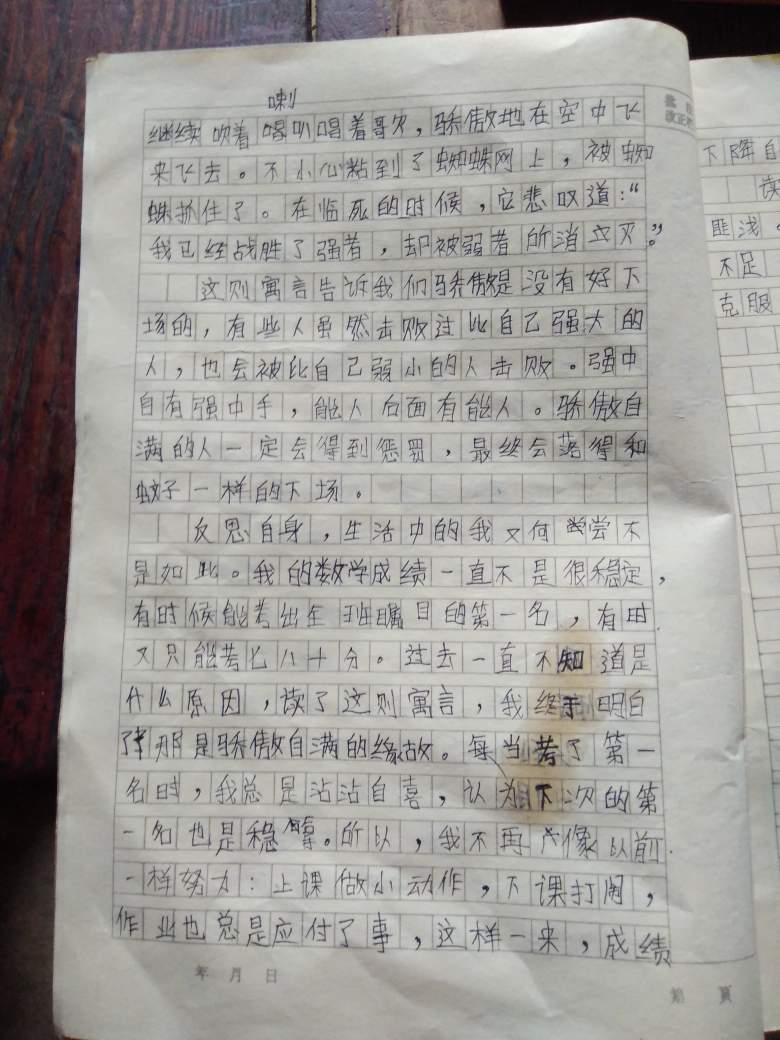 喇
继续吹着喝叭唱着哥欠，骄傲地在空中飞
来飞去。不小心粘到了蜘蛛网上，被蜘
蛛抓住了。在临死的时候，它悲叹道：“
我已经战胜了强者，却被弱者所消灭”。
这则寓言告诉我们骄傲是没有好下
场的，有些人虽然击败过比自己强大的
人，也会被比自己弱小的人击败。强中
自有强中手，能人后面有能人。骄傲自
满的人一定会得到惩罚，最终会落得和
蚊子一样的下场。
反思自身，生活中的我又何尝不
是如此。我的数学成绩一直不是很稳定，
有时候能考出全班瞩目的第一名，有时
又只能考七八十分。过去一直不知道是
什么原因，读了这则寓言，我终于明白
了那是骄傲自满的缘故。每当考了第一
名时，我总是沾沾自喜，认为下次的第
一名也是稳拿。所以，我不再像以前
一样努力：上课做小动作，下课打闹，
作业也总是应付了事，这样一来，成绩
年 月 日
第 頁
批 
改正
下降自
读
匪浅。
不足
克服